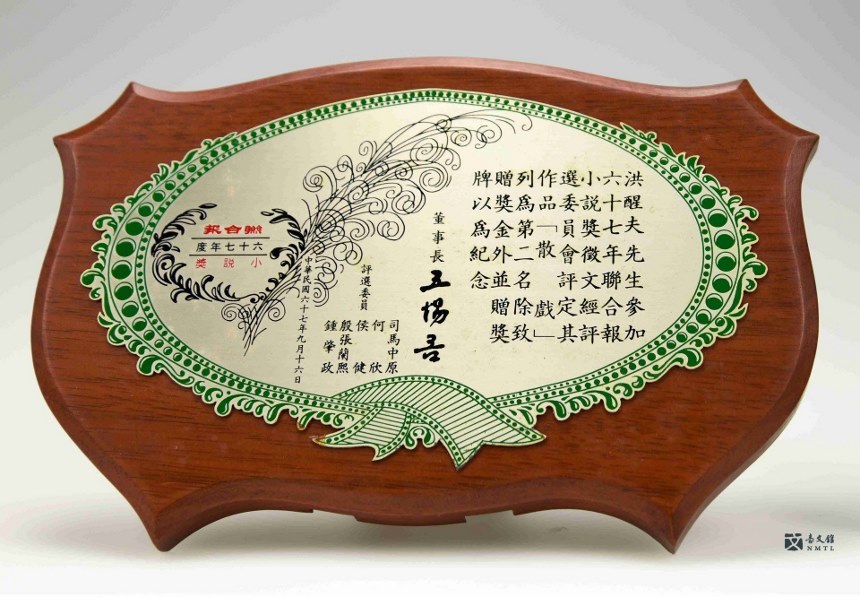 洪醒夫先生參加
六十七年聯合報
小說獎徵文經評
選委員會評定其
作品「散戲」
列爲第二名除致
贈獎金外並贈獎
牌以爲紀念
董事長 王惕吾
評選委員
司馬中原
何欣
侯健
殷張蘭熙
鍾肇政
中華民國六十七年九月十六日
聯合報
六十七年度
小說獎
臺文館
NMTL